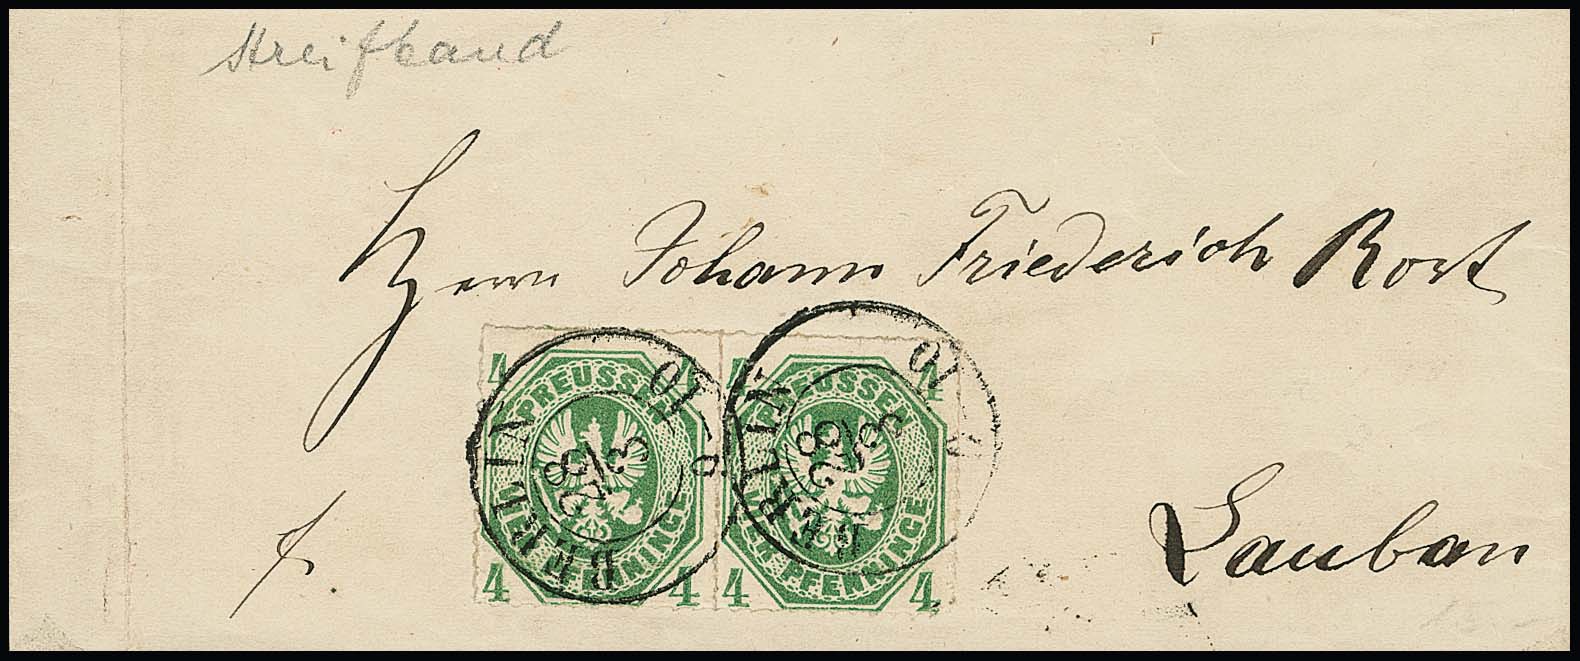 Streifband
Herrn Johann Friederich Rost
f.
Lauban
4 4
PREUSSEN
VIER PFENNINGE
4 4
4 4
PREUSSEN
VIER PFENNINGE
4 4
BERLIN
28/3
9-10
BERLIN
28/3
10